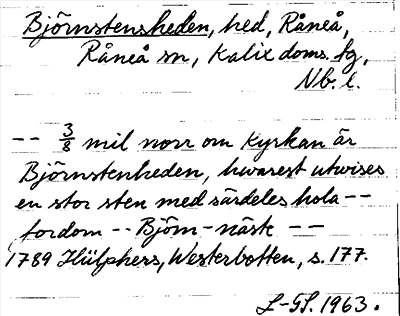 Björnstensheden, hed, Råneå,
Råneå sn, Kalix doms. fg,
Nb. l.
-- 3/8 mil norr om Kyrkan är
Björnstenheden, hwarest utwises
en stor sten med särdeles hola --
fordom -- Björn-näste --
1789 Hülphers, Westerbotten, s. 177.
L-GS. 1963.